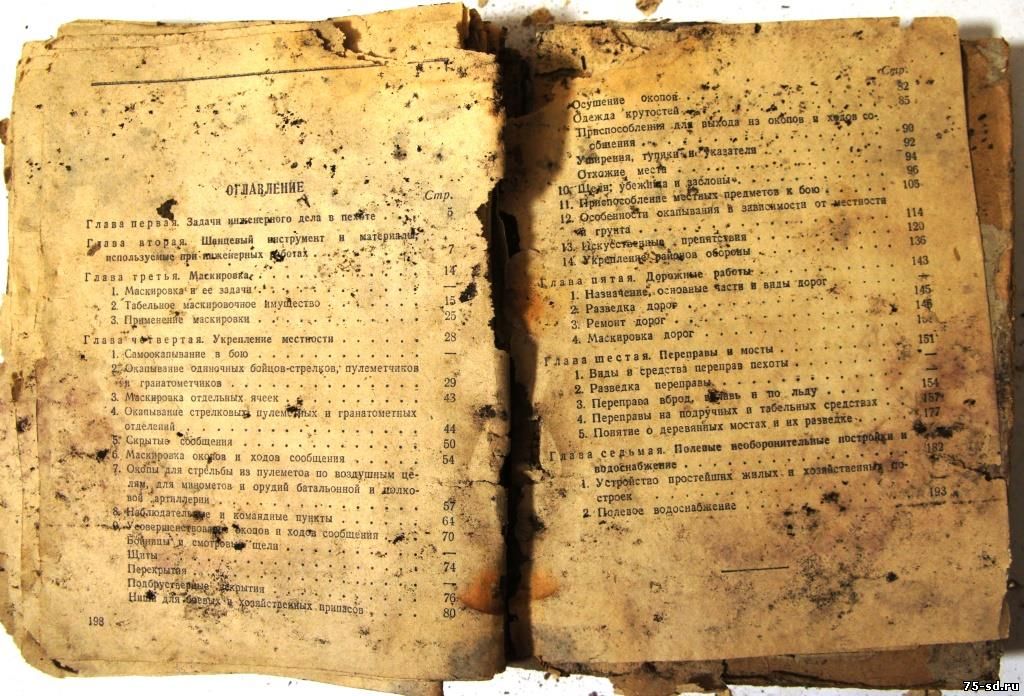 ОГЛАВЛЕНИЕ
Стр.
Глава первая. Задачи инженерного дела в пехоте 5
Глава вторая. Шанцевый инструмент и материалы,
используемые при инженерных работах 7
Глава третья. Маскировка 14
1. Маскировка и ее задачи —
2. Табельное маскировочное имущество 15
3. Применение маскировки 25
Глава четвертая. Укрепление местности 28
1. Самоокапывание в бою —
2. Окапывание одиночных бойцов-стрелков, пулеметчиков
и гранатометчиков 29
3. Маскировка отдельных ячеек 43
4. Окапывание стрелковых, пулеметных и гранатометных
отделений 44
5. Скрытые сообщения 50
6. Маскировка окопов и ходов сообщения 54
7. Окопы для стрельбы из пулеметов по воздушным це-
лям, для минометов и орудий батальонной и полко-
вой артиллерии 57
8. Наблюдательные и командные пункты 64
9. Усовершенствование окопов и ходов сообщения 70
Бойницы и смотровые щели —
Щиты
Перекрытия 74
Подбрустверные закрытия —
Ниши для боевых и хозяйственных припасов 76
80
198
Стр.
Осушение окопов 82
Одежда крутостей 85
Приспособления для выхода из окопов и ходов со-
общения 90
Уширения, тупики и указатели 92
Отхожие места 94
10. Щели, убежища и заслоны 96
11. Приспособление местных предметов к бою 105
12. Особенности окапывания в зависимости от местности
и грунта 114
13. Искусственные препятствия 120
14. Укрепление районов обороны 136
Глава пятая. Дорожные работы 143
1. Назначение, основные части и виды дорог —
2. Разведка дорог 145
3. Ремонт дорог 146
4. Маскировка дорог
Глава шестая. Переправы и мосты 151
1. Виды и средства переправ пехоты —
2. Разведка переправы —
3. Переправа вброд, вплавь и по льду 154
4. Переправы на подручных и табельных средствах 157
5. Понятие о деревянных мостах и их разведке 177
Глава седьмая. Полевые необоронительные постройки и
водоснабжение 182
1. Устройство простейших жилых и хозяйственных по-
строек —
2. Полевое водоснабжение 193
75-sd.ru